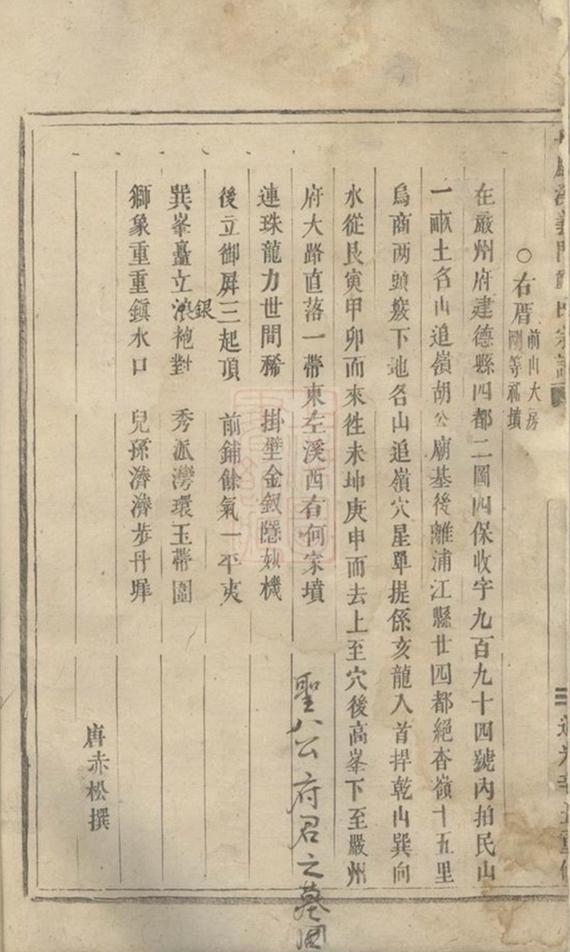 ○右厝前山大房剛等福墳
在嚴州府建德縣四都二圖四保收字九百九十四號內拍民山
一畝土名山追嶺胡公廟基後離浦江縣廿四都絕杳嶺十五里
烏商两頭發下地名山追嶺穴星單提係亥龍入首捍乾山巽向
水從艮寅甲卯而來徃未坤庚申而去上至穴後高峯下至嚴州
府大路直落一帶東左溪西右何家墳
連珠龍力世間稀 掛壁金釵隱妙機
後立御屏三起頂 前鋪餘氣一平夷
巽峯矗立銀袍對 秀派灣環玉帶圍
獅象重重鎮水口 兒孫濟濟步丹墀
唐赤松撰
聖八公府君之墓圖